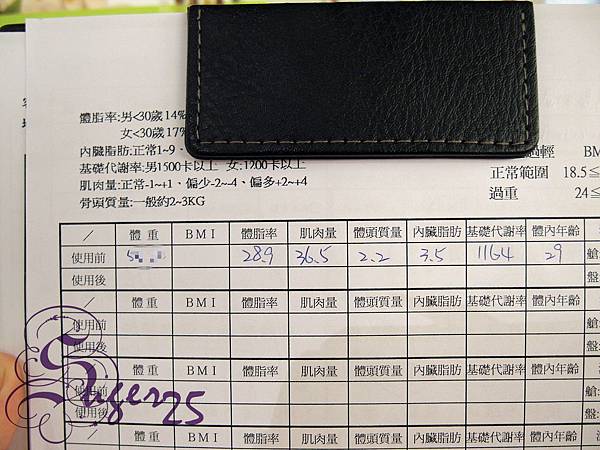 體脂率:男<30歲14%
女<30歲17%
內臟脂肪:正常1~9、
基礎代謝率:男1500卡以上 女:1200卡以上
肌肉量:正常-1~+1、偏少-2~-4、偏多+2~+4
骨頭質量:一般約2~3KG
過輕 BM
正常範圍 18.5≦
過重 24≦
／ 體重 BMI 體脂率 肌肉量 體頭質量 內臟脂肪 基礎代謝率 體內年齡
使用前 5 28.9 36.5 2.2 3.5 1164 29 艙:
使用後 盤:
／ 體重 BMI 體脂率 肌肉量 體頭質量 內臟脂肪 基礎代謝率 體內年齡
使用前 艙:
使用後 盤:
／ 體重 BMI 體脂率 肌肉量 體頭質量 內臟脂肪 基礎代謝率 體內年齡
使用前 艙:
使用後 盤:
／ 體重 BMI 體脂率 肌肉量 體頭質量 內臟脂肪 基礎代謝率 體內年齡
Suger25